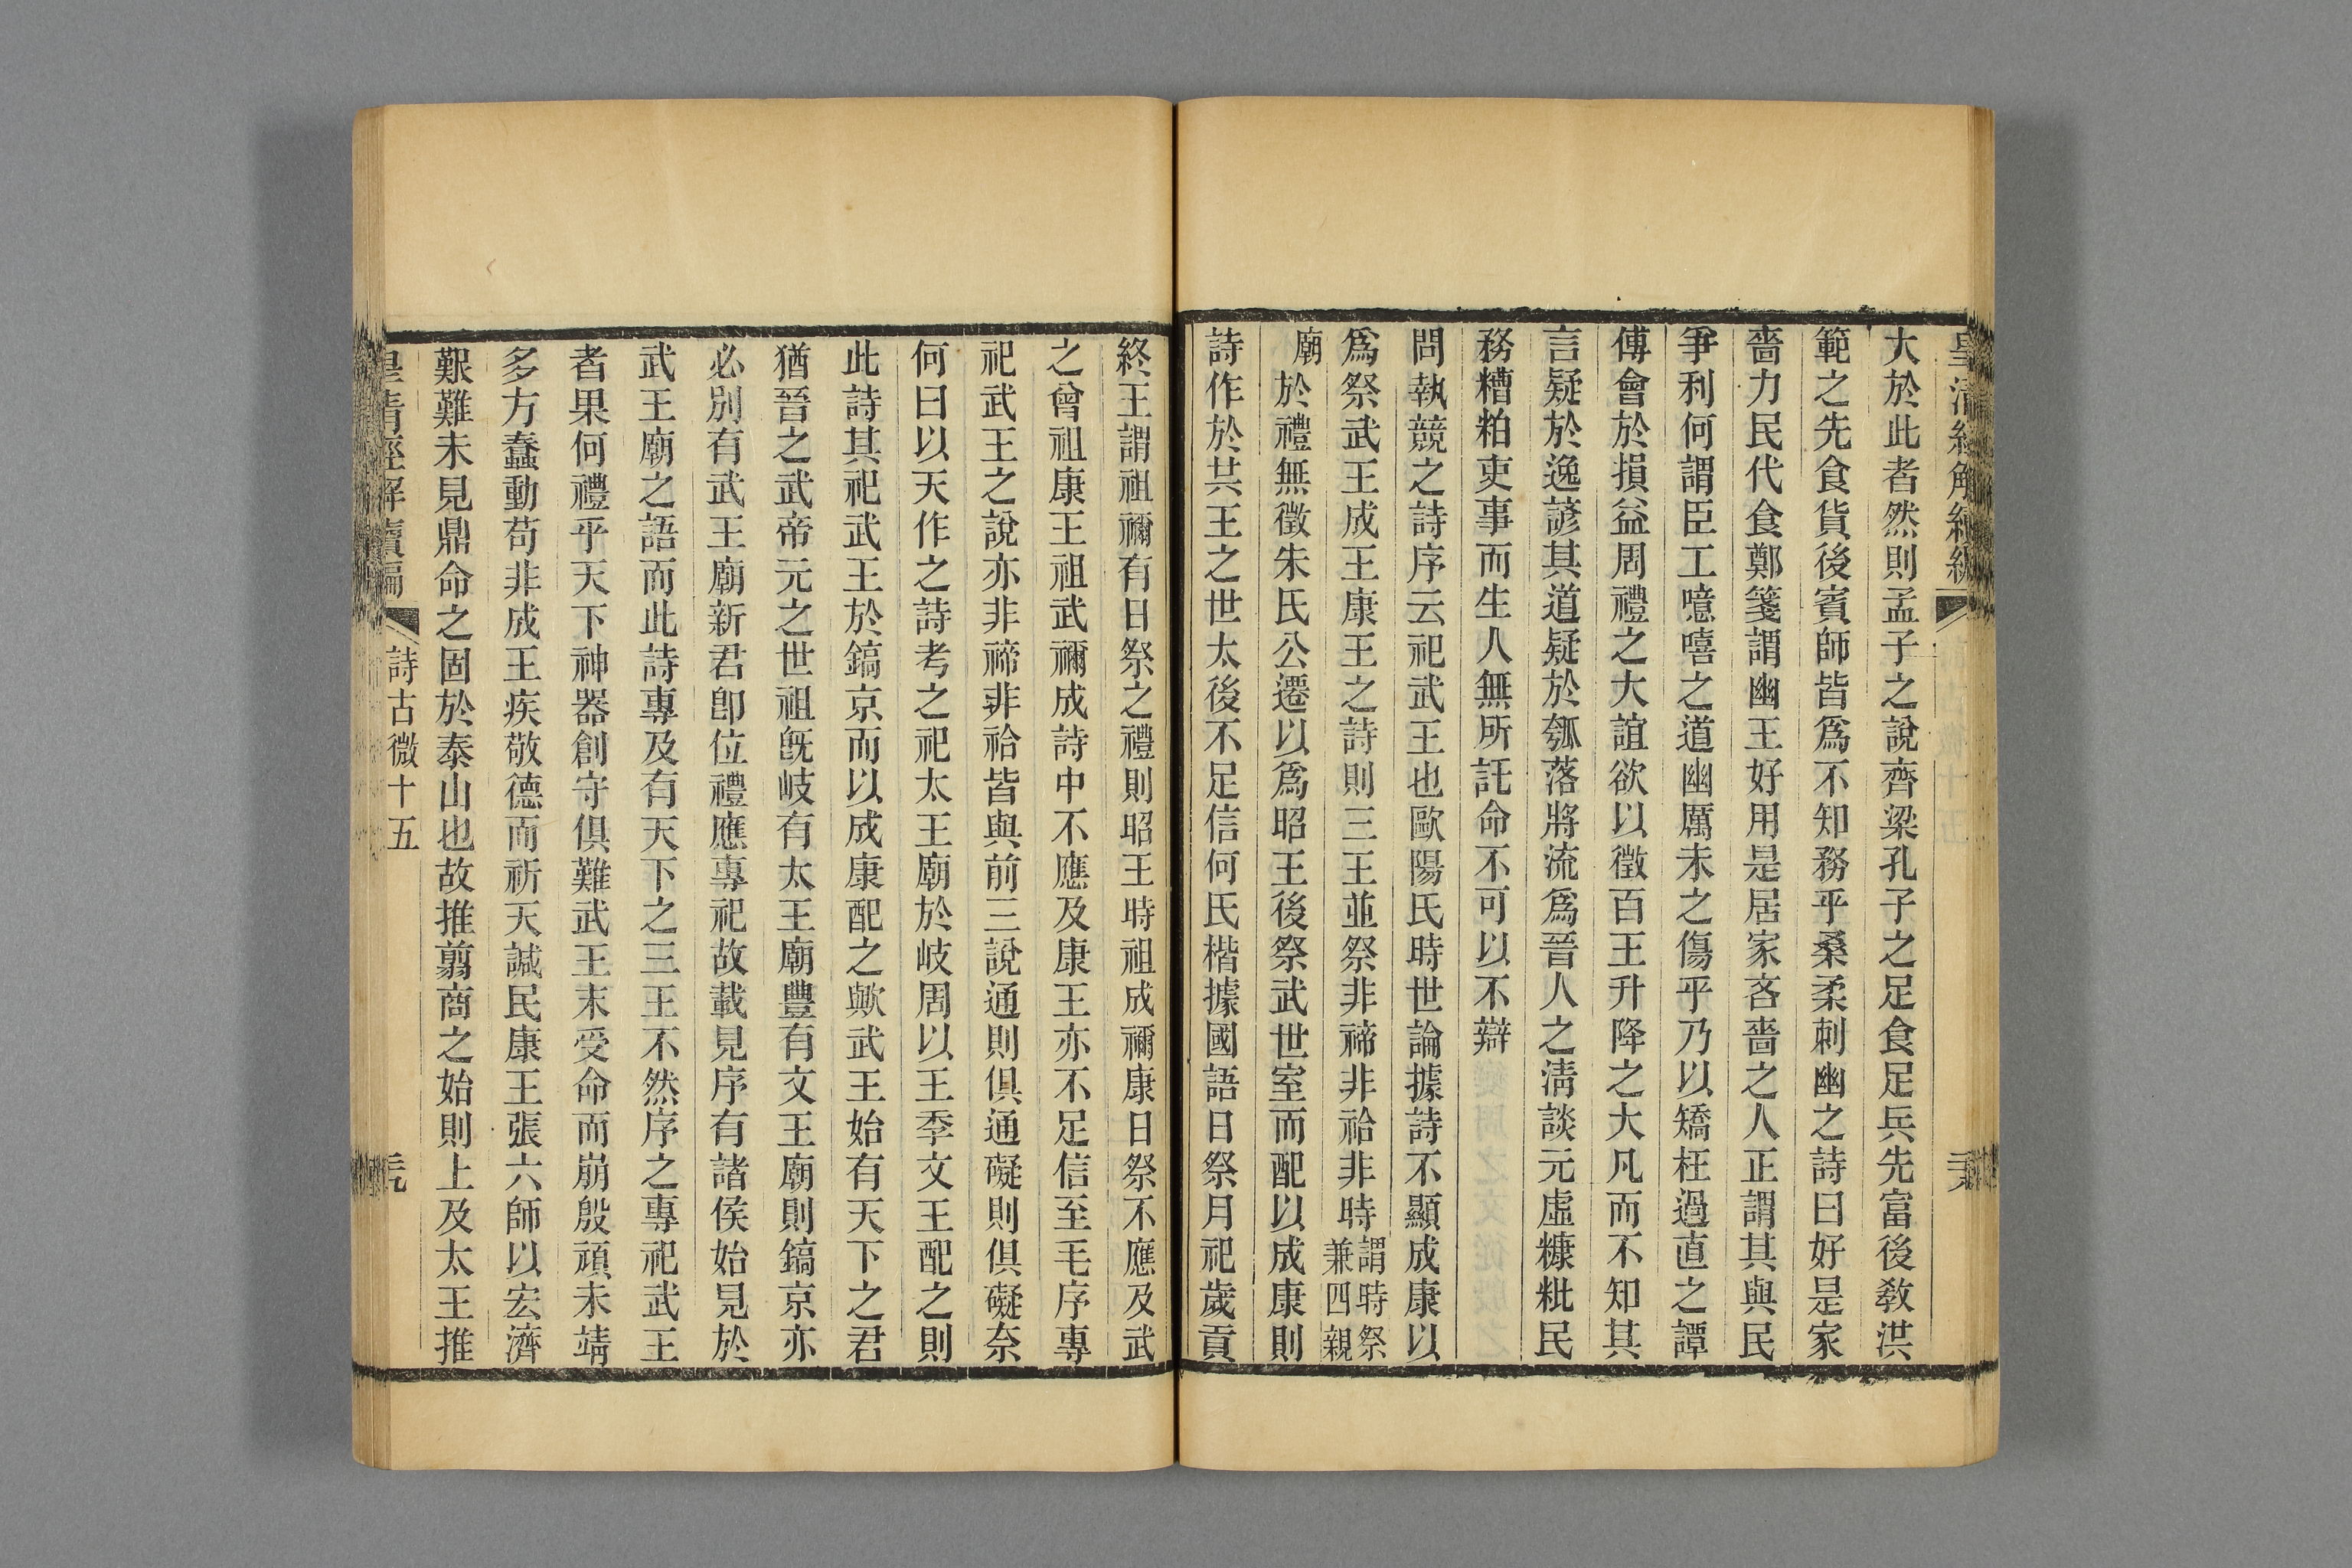 皇清經解續編
大於此者然則孟子之說齊梁孔子之足食足兵先富後敎洪
範之先食貨後賓師皆爲不知務乎桑柔刺幽之詩曰好是家
嗇力民代食鄭箋謂幽王好用是居家吝嗇之人正謂其與民
爭利何謂臣工噫嘻之道幽厲未之傷乎乃以矯枉過直之譚
傅會於損益周禮之大誼欲以徵百王升降之大凡而不知其
言疑於逸諺其道疑於瓠落將流爲晉人之淸談元虛糠粃民
務糟粕吏事而生人無所託命不可以不辯
問執競之詩序云祀武王也歐陽氏時世論據詩不顯成康以
爲祭武王成王康王之詩則三王並祭非禘非祫非時謂時祭兼四親
廟於禮無徵朱氏公遷以爲昭王後祭武世室而配以成康則
詩作於共王之世太後不足信何氏楷據國語日祭月祀歲貢
終王謂祖禰有日祭之禮則昭王時祖成禰康日祭不應及武
之曾祖康王祖武禰成詩中不應及康王亦不足信至毛序專
祀武王之說亦非禘非祫皆與前三說通則俱通礙則俱礙奈
何曰以天作之詩考之祀太王廟於岐周以王季文王配之則
此詩其祀武王於鎬京而以成康配之歟武王始有天下之君
猶晉之武帝元之世祖旣岐有太王廟豐有文王廟則鎬京亦
必別有武王廟新君卽位禮應專祀故載見序有諸侯始見於
武王廟之語而此詩專及有天下之三王不然序之專祀武王
者果何禮乎天下神器創守俱難武王末受命而崩殷頑未靖
多方蠢動苟非成王疾敬德而祈天諴民康王張六師以宏濟
艱難未見鼎命之固於泰山也故推翦商之始則上及太王推
皇淸經解續編
詩古微十五